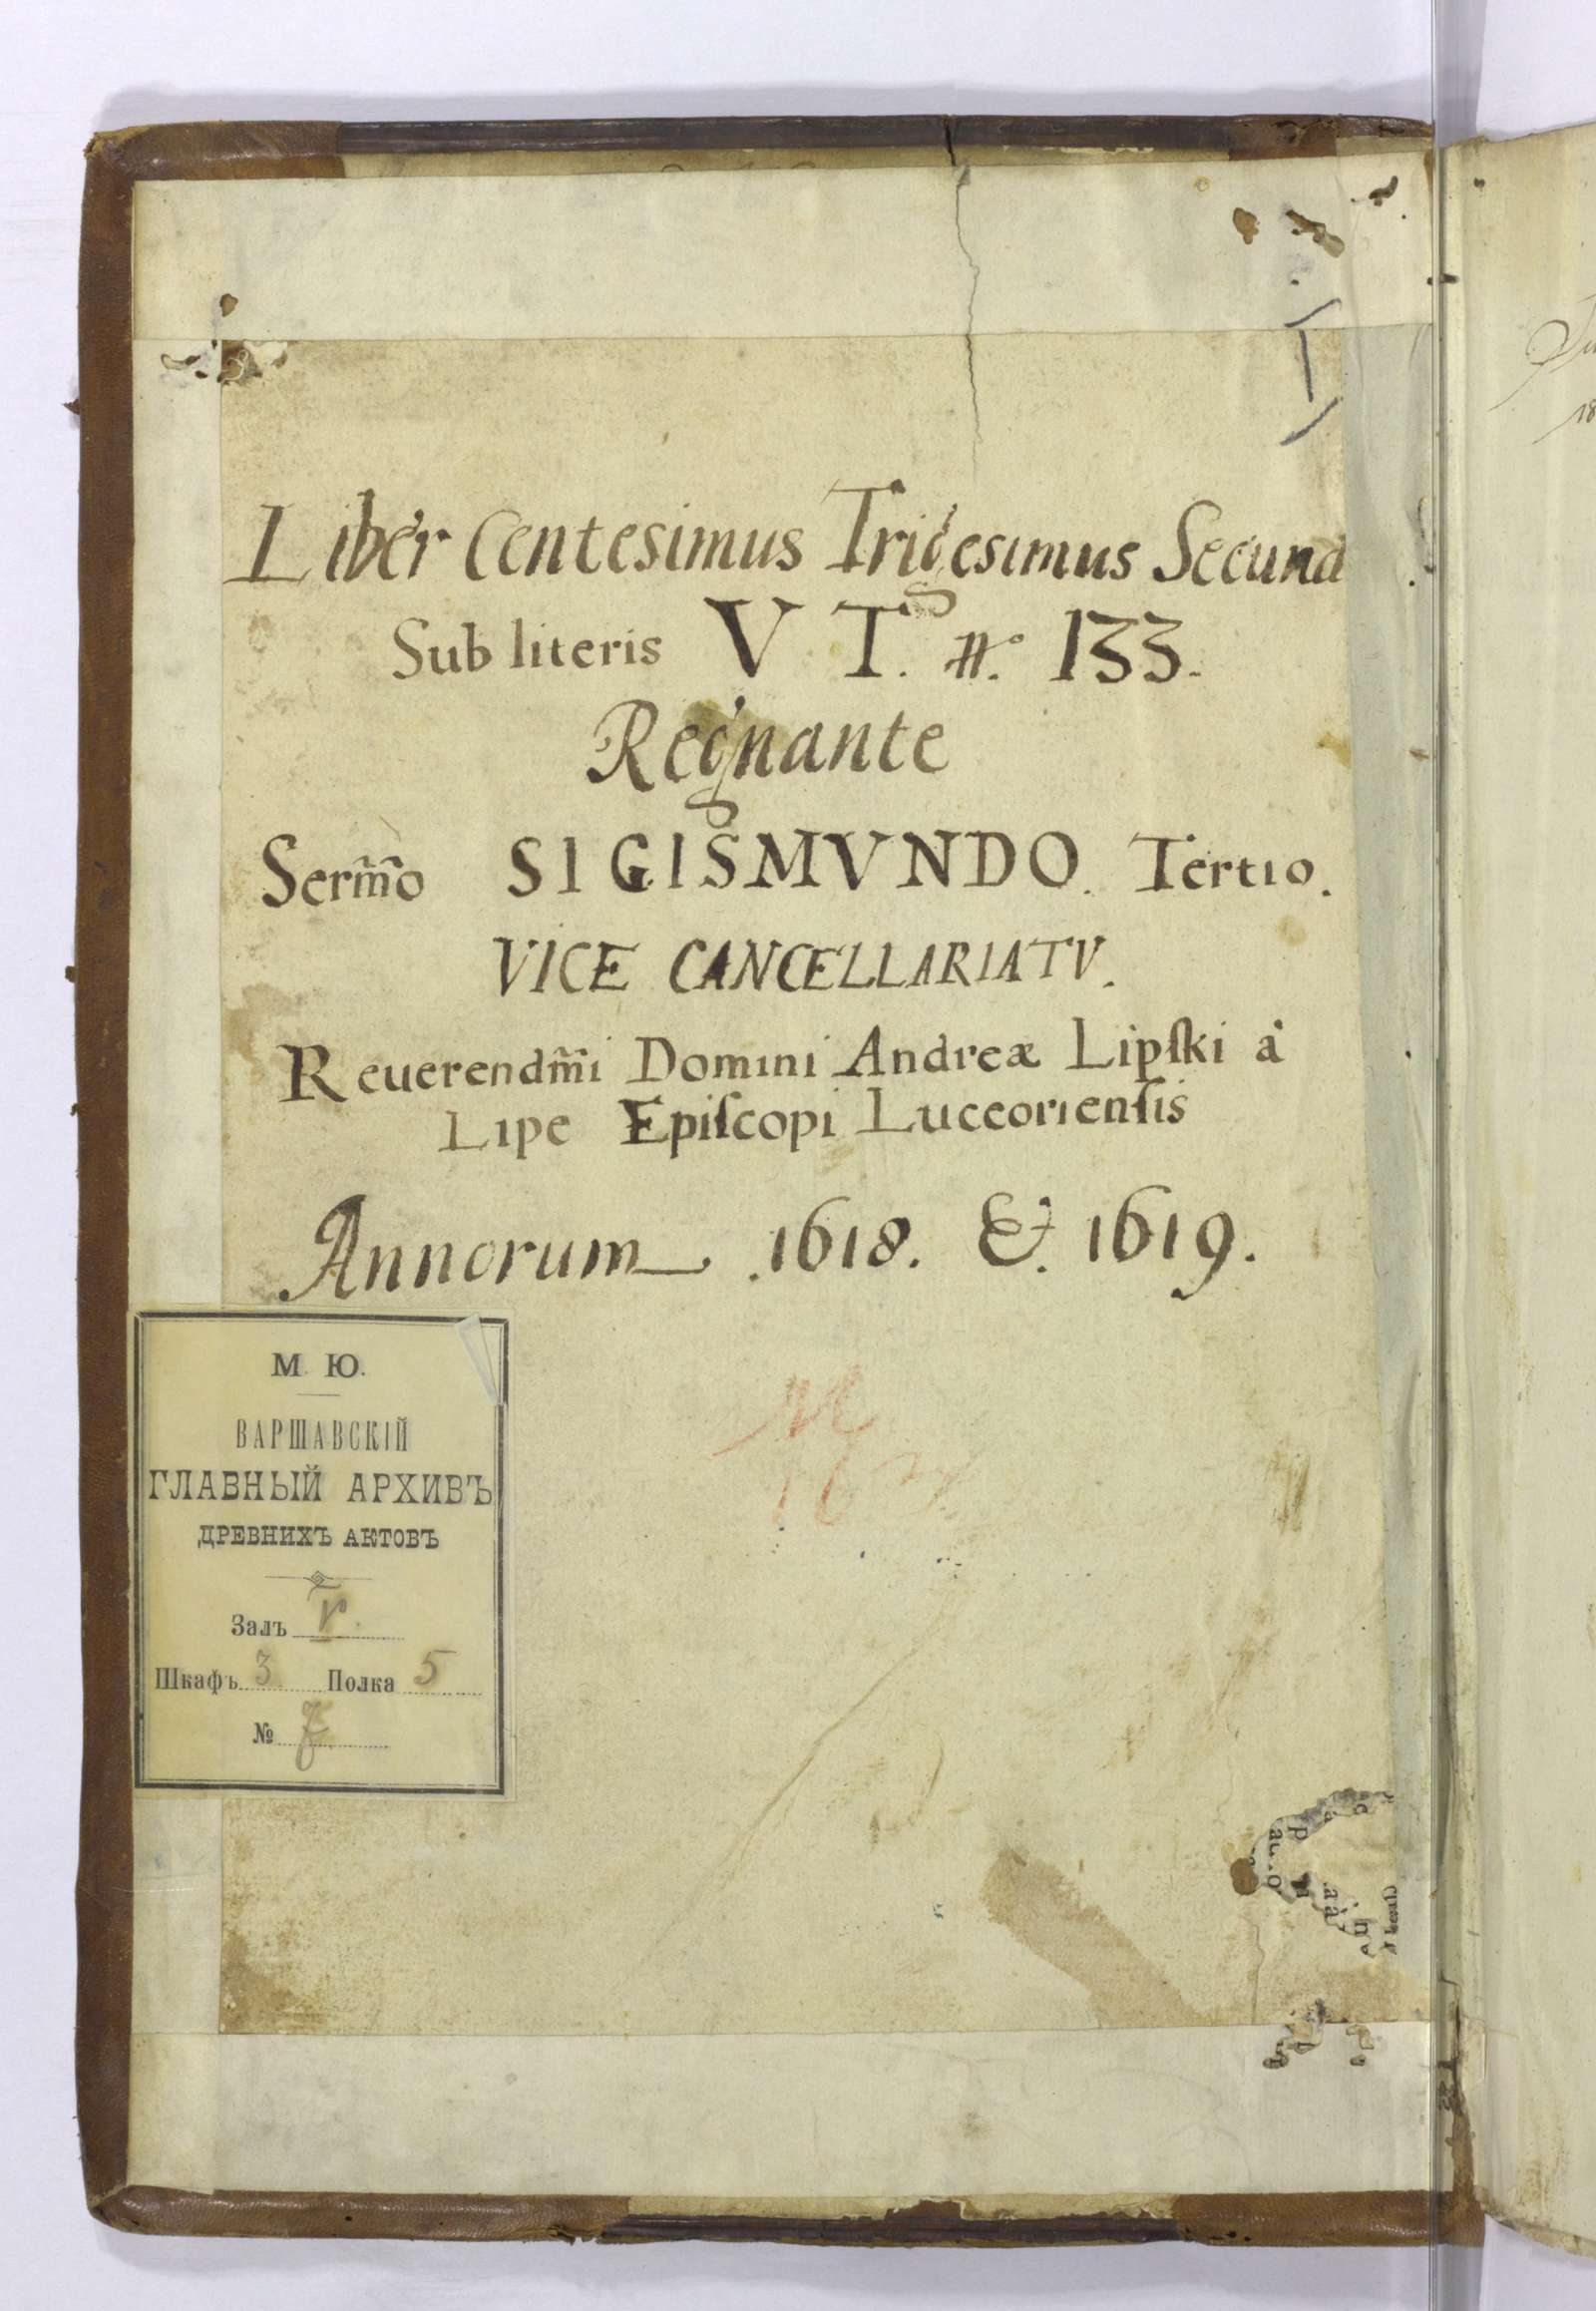 Liber Centesimus Trigesimus Secund
Sub literis V T. №. 133.
Regnante
Serm̃o SIGISMVNDO. Tertio.
VICE CANCELLARIATV.
Reuerendm̃i Domini Andreæ Lipſki à
Lipe Epiſcopi Luceorienſis
Annorum .1618. &. 1619.
М. Ю.
ВАРШАВСКІЙ
ГЛАВНЫЙ АРХИВЪ
ДРЕВНИХЪ АКТОВЪ
Залъ V.
Шкафъ 3 Полка 5
№ 7